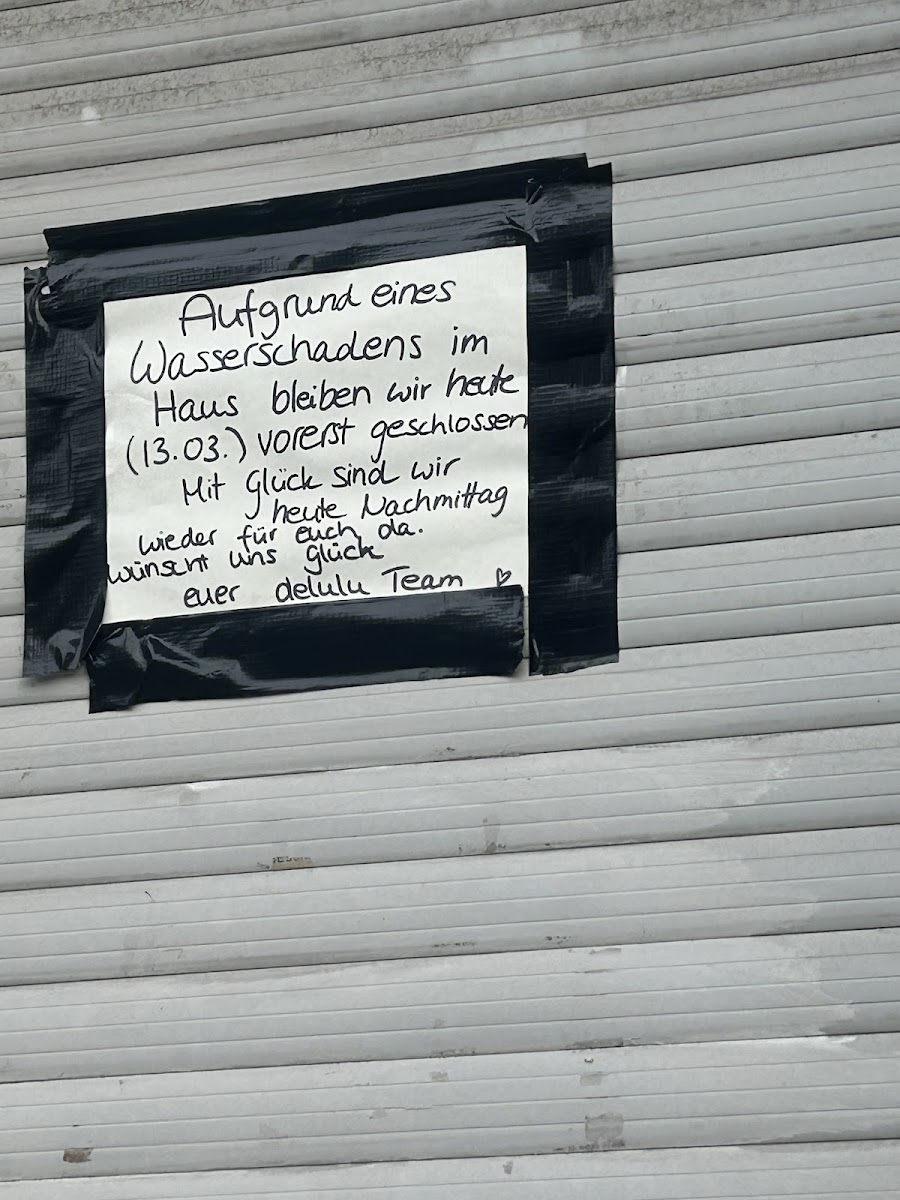 Aufgrund eines
Wasserschadens im
Haus bleiben wir heute
(13.03.) vorerst geschlossen
Mit Glück sind wir
heute Nachmittag
wieder für euch da.
wünscht uns Glück
euer delulu Team ♡